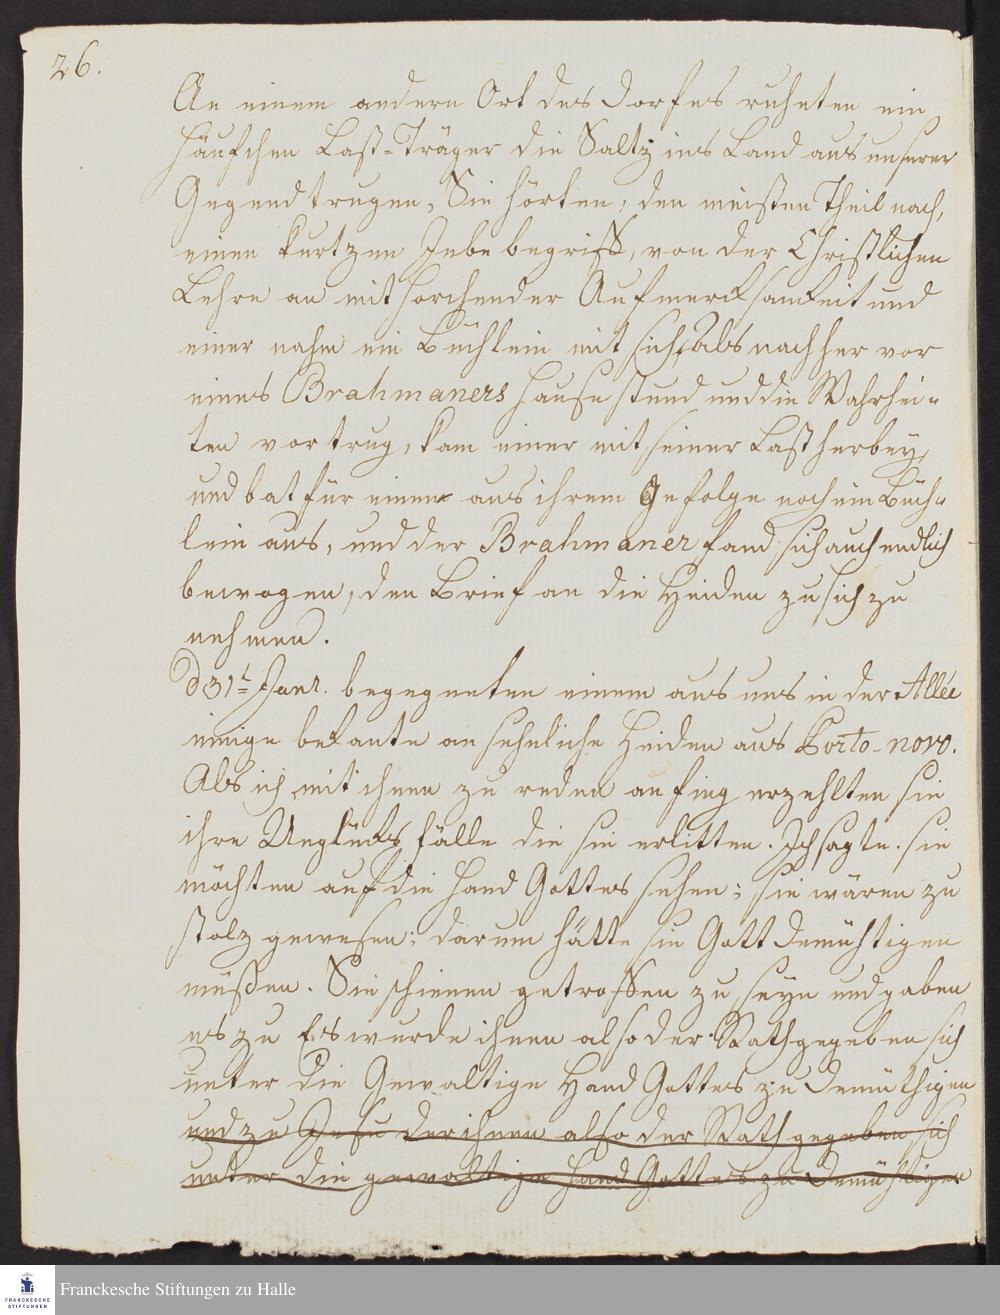 26.
An einem andern Ort des Dorfes ruheten ein
Häufchen Last-Träger die Saltz ins Land aus unserer
Gegend trugen, Sie hörten, den meisten Theil nach,
einen kurtzen Inbe begriff, von der Christlichen
Lehre an mit horchender Aufmercksamkeit und
einer nahm ein Büchlein mit sich, Als nachher vor
eines Brahmaners Hause stund und die Wahrhei-
ten vortrug, kam einer mit seiner Last herbey,
und bat für einen aus ihrem Gefolge noch ein Büch-
lein aus, und der Brahmaner fand sich auch endlich
bewogen, den Brief an die Heiden zu sich zu
nehmen.
d 31t Janr. begegneten einem aus uns in der Allée
einige bekante ansehnliche Heiden aus Porto-novo.
Als ich mit ihnen zu reden anfing erzehlten sie
ihre Unglücks fälle die sie erlitten. Ich sagte. sie
möchten auf die Hand Gottes sehen; sie wären zu
stolz gewesen; darum hätte sie Gott demühtigen
müßen. Sie schienen getroffen zu seyn und gaben
es zu Es wurde ihnen also der Rath gegeben sich
unter die Gewaltige Hand Gottes zu demüthigen
und zu Jesu der ihnen also der Rath gegeben sich
unter die gewaltige Hand Gottes zu demühtigen
Franckesche Stiftungen zu Halle
FRANCKESCHE
STIFTUNGEN